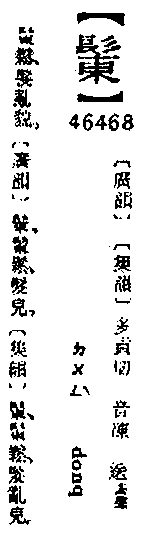 【𩭩】
46468
〔廣韻〕〔集韻〕多貢切 音凍 送去聲
ㄉㄨㄥˋ donq
𩭩鬆、髮亂貌。〔廣韻〕𩭩、𩭩鬆、髮皃。〔集韻〕𩭩、𩭩鬆、髮亂皃。